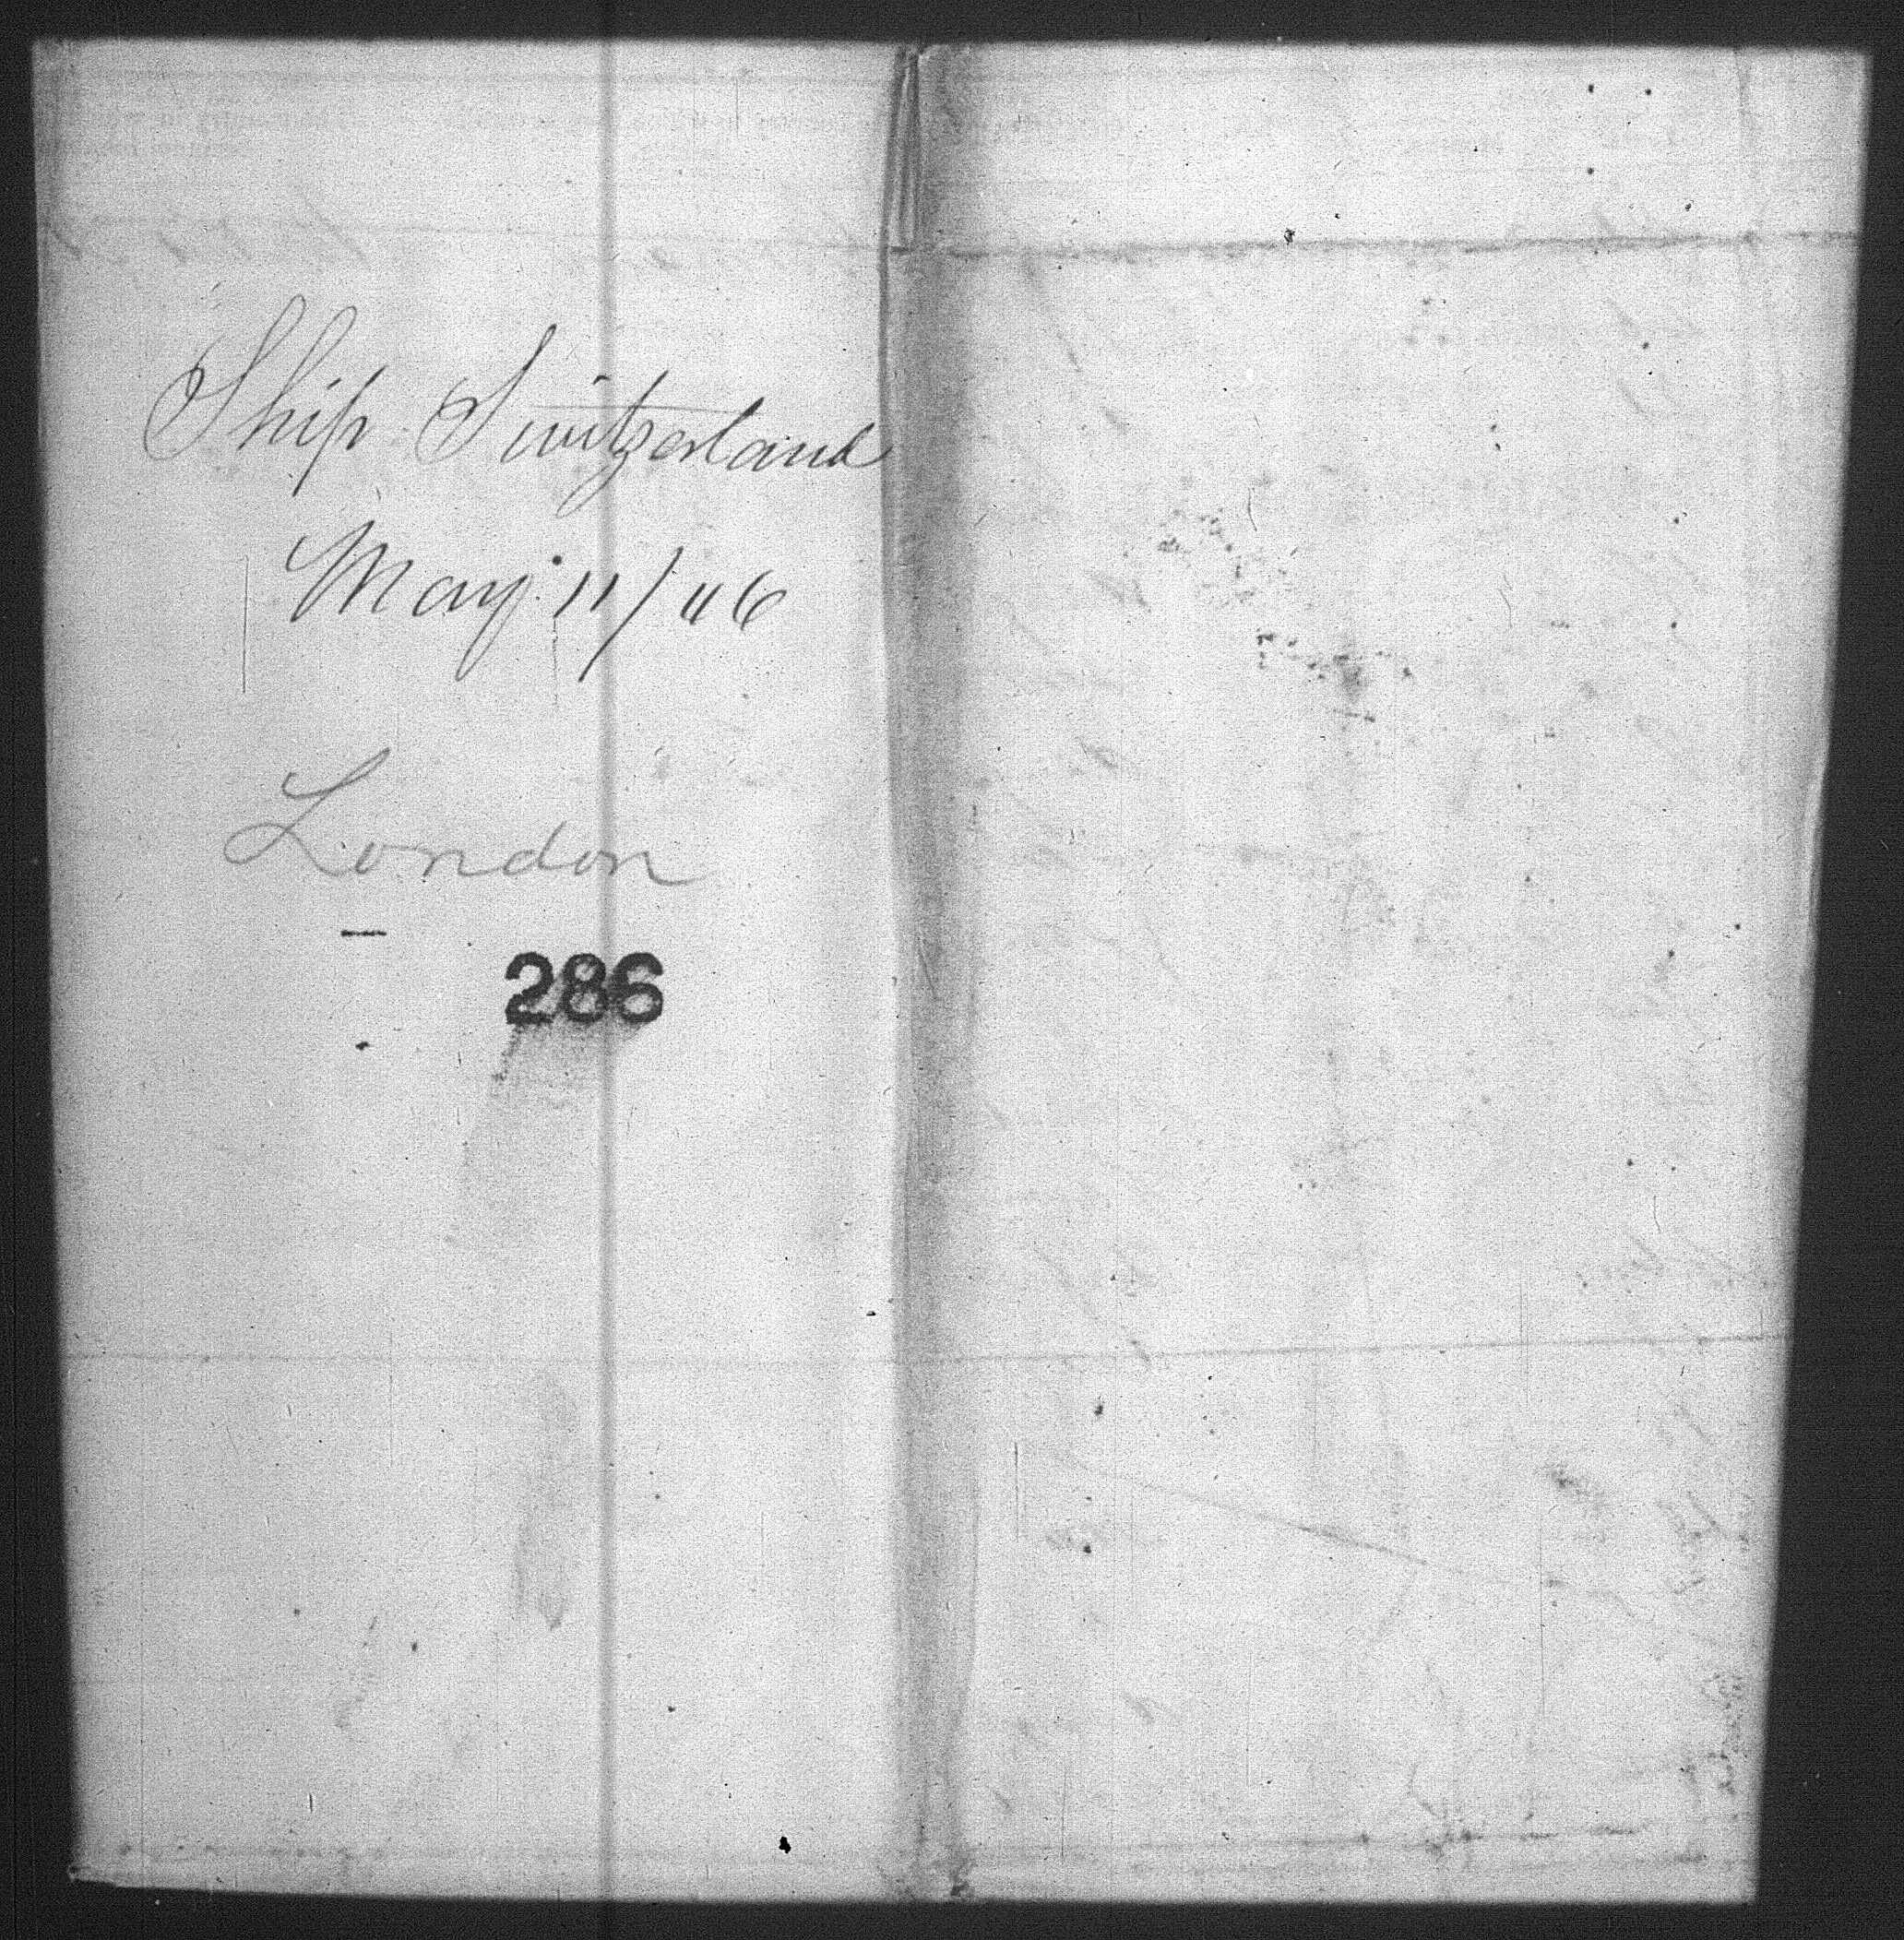 Ship Switzerland
May 11/46
London
286